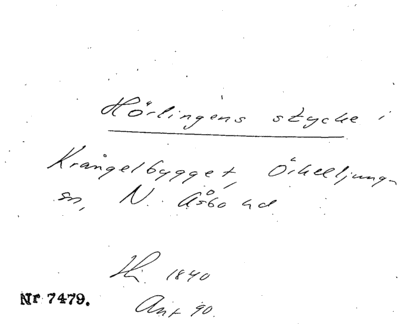 Hörlingens stycke i
Krångelbygget, Örkelljunga
sn, N. Åsbo hd
Hi. 1840
Ant 90.
Nr 7479.